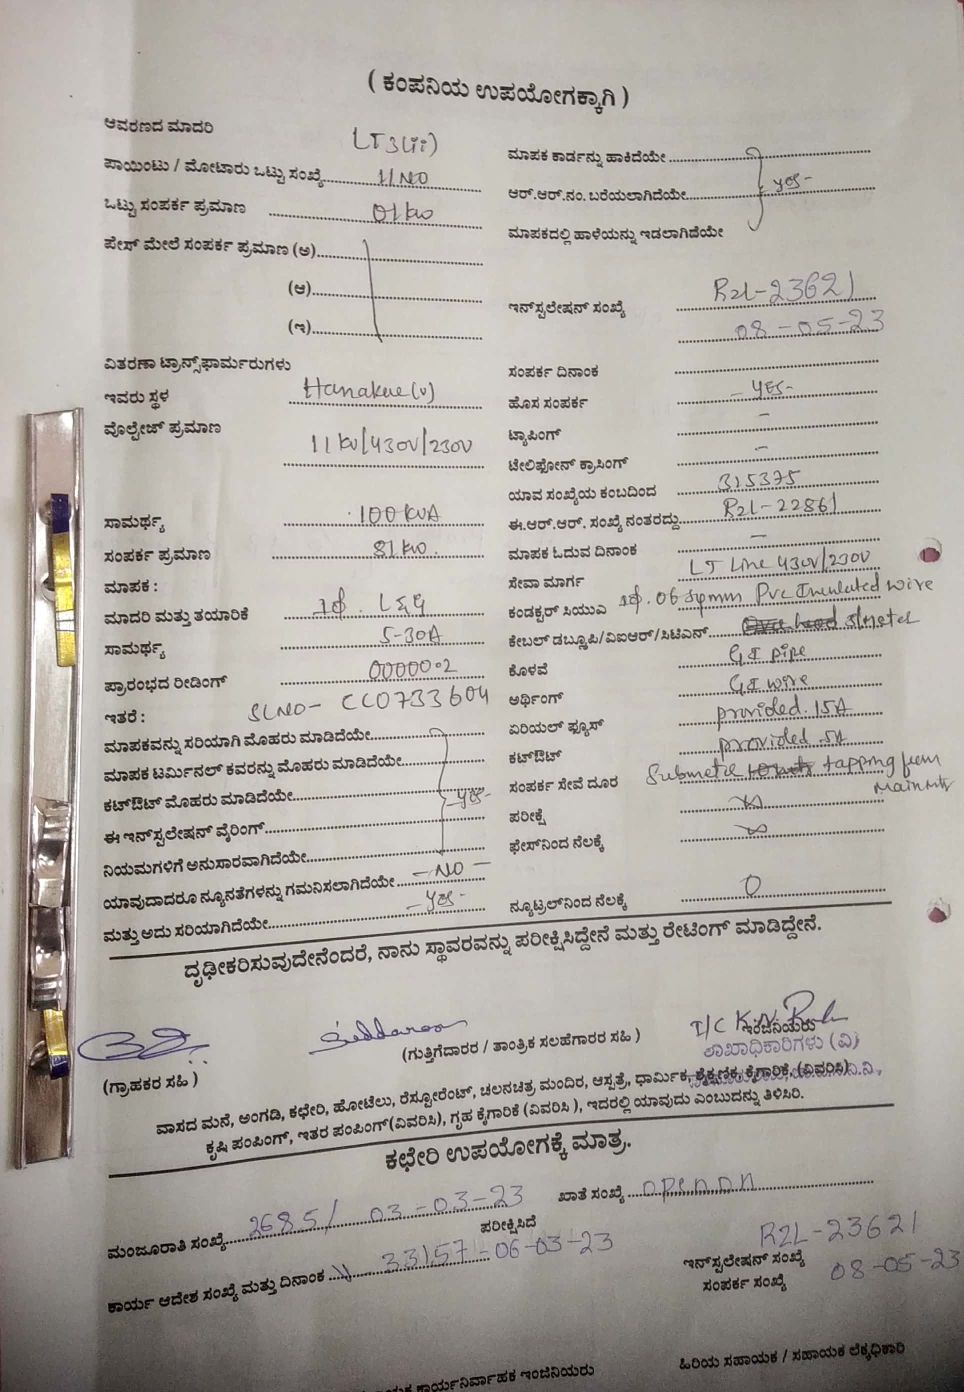 ( ಕಂಪನಿಯ ಉಪಯೋಗಕ್ಕಾಗಿ )
ಆವರಣದ ಮಾದರಿ LT3(ii)
ಪಾಯಿಂಟು / ಮೋಟಾರು ಒಟ್ಟು ಸಂಖ್ಯೆ 1/NO
ಒಟ್ಟು ಸಂಪರ್ಕ ಪ್ರಮಾಣ 01 kw
ಪೇಸ್ ಮೇಲೆ ಸಂಪರ್ಕ ಪ್ರಮಾಣ (ಅ)
(ಆ)
(ಇ)
ವಿತರಣಾ ಟ್ರಾನ್ಸ್‌ಫಾರ್ಮರುಗಳು
ಇವರು ಸ್ಥಳ (v)
ವೊಲ್ಟೇಜ್ ಪ್ರಮಾಣ 11kv/430v/230v
ಸಾಮರ್ಥ್ಯ 100 KVA
ಸಂಪರ್ಕ ಪ್ರಮಾಣ 81 kw.
ಮಾಪಕ :
ಮಾದರಿ ಮತ್ತು ತಯಾರಿಕೆ 1φ. L&G
ಸಾಮರ್ಥ್ಯ 5-30A
ಪ್ರಾರಂಭದ ರೀಡಿಂಗ್ 00000.2
ಇತರೆ : SLNO- CC0733604
ಮಾಪಕವನ್ನು ಸರಿಯಾಗಿ ಮೊಹರು ಮಾಡಿದೆಯೇ
ಮಾಪಕ ಟರ್ಮಿನಲ್ ಕವರನ್ನು ಮೊಹರು ಮಾಡಿದೆಯೇ
ಕಟ್‌ಔಟ್ ಮೊಹರು ಮಾಡಿದೆಯೇ - yes-
ಈ ಇನ್‌ಸ್ಟಲೇಷನ್ ವೈರಿಂಗ್
ನಿಯಮಗಳಿಗೆ ಅನುಸಾರವಾಗಿದೆಯೇ
ಯಾವುದಾದರೂ ನ್ಯೂನತೆಗಳನ್ನು ಗಮನಿಸಲಾಗಿದೆಯೇ - NO -
ಮತ್ತು ಅದು ಸರಿಯಾಗಿದೆಯೇ - yes -
ಮಾಪಕ ಕಾರ್ಡನ್ನು ಹಾಕಿದೆಯೇ
ಆರ್.ಆರ್.ನಂ. ಬರೆಯಲಾಗಿದೆಯೇ yes-
ಮಾಪಕದಲ್ಲಿ ಹಾಳೆಯನ್ನು ಇಡಲಾಗಿದೆಯೇ
ಇನ್‌ಸ್ಟಲೇಷನ್ ಸಂಖ್ಯೆ R2L-23621
08-05-23
ಸಂಪರ್ಕ ದಿನಾಂಕ
ಹೊಸ ಸಂಪರ್ಕ - yes-
ಟ್ಯಾಪಿಂಗ್ -
ಟೇಲಿಫೋನ್ ಕ್ರಾಸಿಂಗ್ -
ಯಾವ ಸಂಖ್ಯೆಯ ಕಂಬದಿಂದ 315375
ಈ.ಆರ್.ಆರ್. ಸಂಖ್ಯೆ ನಂತರದ್ದು R2L-22861
ಮಾಪಕ ಓದುವ ದಿನಾಂಕ -
ಸೇವಾ ಮಾರ್ಗ LT Line 430v/230v
ಕಂಡಕ್ಟರ್ ಸಿಯುಎ 1φ. 06 sqmm Pvc Insulated wire
ಕೇಬಲ್ ಡಬ್ಲ್ಯೂಪಿ/ವಿಐಆರ್/ಸಿಟಿಎನ್
ಕೊಳವೆ GI pipe
ಅರ್ಥಿಂಗ್ GI wire
ಏರಿಯಲ್ ಫ್ಯೂಸ್ provided. 15A
ಕಟ್‌ಔಟ್ provided. 5A
ಸಂಪರ್ಕ ಸೇವೆ ದೂರ tapping from
ಪರೀಕ್ಷೆ ∞
ಫೇಸ್‌ನಿಂದ ನೆಲಕ್ಕೆ ∞
ನ್ಯೂಟ್ರಲ್‌ನಿಂದ ನೆಲಕ್ಕೆ 0
ದೃಢೀಕರಿಸುವುದೇನೆಂದರೆ, ನಾನು ಸ್ಥಾವರವನ್ನು ಪರೀಕ್ಷಿಸಿದ್ದೇನೆ ಮತ್ತು ರೇಟಿಂಗ್ ಮಾಡಿದ್ದೇನೆ.
(ಗ್ರಾಹಕರ ಸಹಿ )
(ಗುತ್ತಿಗೆದಾರರ / ತಾಂತ್ರಿಕ ಸಲಹೆಗಾರರ ಸಹಿ )
I/C K.N.
ಇಂಜಿನಿಯರು
ಶಾಖಾಧಿಕಾರಿಗಳು (ವಿ)
ವಾಸದ ಮನೆ, ಅಂಗಡಿ, ಕಛೇರಿ, ಹೋಟೆಲು, ರೆಸ್ಟೋರೆಂಟ್, ಚಲನಚಿತ್ರ, ಮಂದಿರ, ಆಸ್ಪತ್ರೆ, ಧಾರ್ಮಿಕ, ಶೈಕ್ಷಣಿಕ, ಕೈಗಾರಿಕೆ, (ವಿವರಿಸಿ)
ಕೃಷಿ ಪಂಪಿಂಗ್, ಇತರ ಪಂಪಿಂಗ್(ವಿವರಿಸಿ), ಗೃಹ ಕೈಗಾರಿಕೆ (ವಿವರಿಸಿ ), ಇದರಲ್ಲಿ ಯಾವುದು ಎಂಬುದನ್ನು ತಿಳಿಸಿರಿ.
ಕಛೇರಿ ಉಪಯೋಗಕ್ಕೆ ಮಾತ್ರ.
ಮಂಜೂರಾತಿ ಸಂಖ್ಯೆ 2685/ 03-03-23 ಖಾತೆ ಸಂಖ್ಯೆ
ಪರೀಕ್ಷಿಸಿದೆ
ಕಾರ್ಯ ಆದೇಶ ಸಂಖ್ಯೆ ಮತ್ತು ದಿನಾಂಕ 33157-06-03-23
ಇನ್‌ಸ್ಟಲೇಷನ್ ಸಂಖ್ಯೆ R2L-23621
ಸಂಪರ್ಕ ಸಂಖ್ಯೆ 08-05-23
ಕಾರ್ಯನಿರ್ವಾಹಕ ಇಂಜಿನಿಯರು
ಹಿರಿಯ ಸಹಾಯಕ / ಸಹಾಯಕ ಲೆಕ್ಕಧಿಕಾರಿ